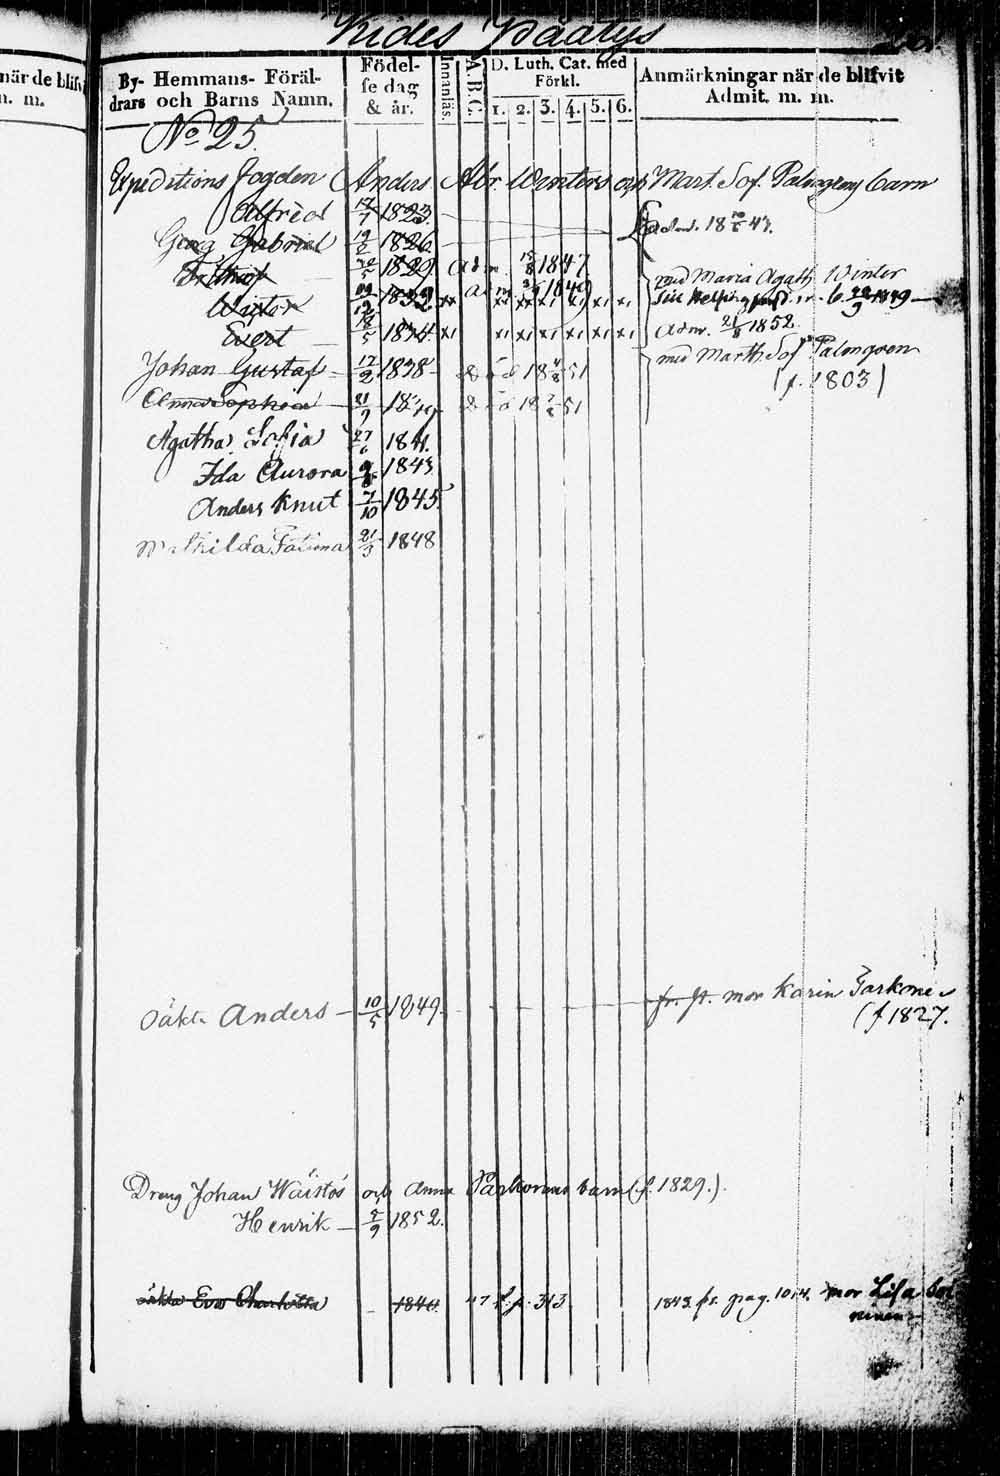 Kides Päätys
när de blifvit
m. m.
By- Hemmans- Föräl-
drars och Barns Namn.
Födel-
se dag
& år.
Innanläs.
A. B. C.
D. Luth. Cat. med
Förkl.
1. 2. 3. 4. 5. 6.
Anmärkningar när de blifvit
Admit. m. m.
No 25.
Expeditions Fogden Anders Abr. Winters och Mart. Sof. Palmgrens barn
Alfred 17/7 1823.
Adm. 18 43.
Georg Gabriel 19/2 1826
1829 Adm. 15/8 1847
med Maria Agath. Winter
Wictor 1832 Adm 1849
Evert 18/5 1834
Adm. 21/8 1852
Johan Gustaf 17/2 1838 18 4/8 51
med Marth. Sof. Palmgren
(f. 1803)
Anna Sophia 21/7 18 51
Agatha Sofia 27/6 1841.
Ida Aurora 1843
Anders Knut 7/10 1845
Mathilda Fatima 21/3 1848
oäkta Anders 10/5 1849.
mor Karin Tarkonen
(f 1827.
Dreng Johan Wäistös och Anna barn (f. 1829.)
Henrik 2/9 1852.
oäkta Eva Charlotta 1840. p. 313
1843 fr. pag. 1014. mor Lisa